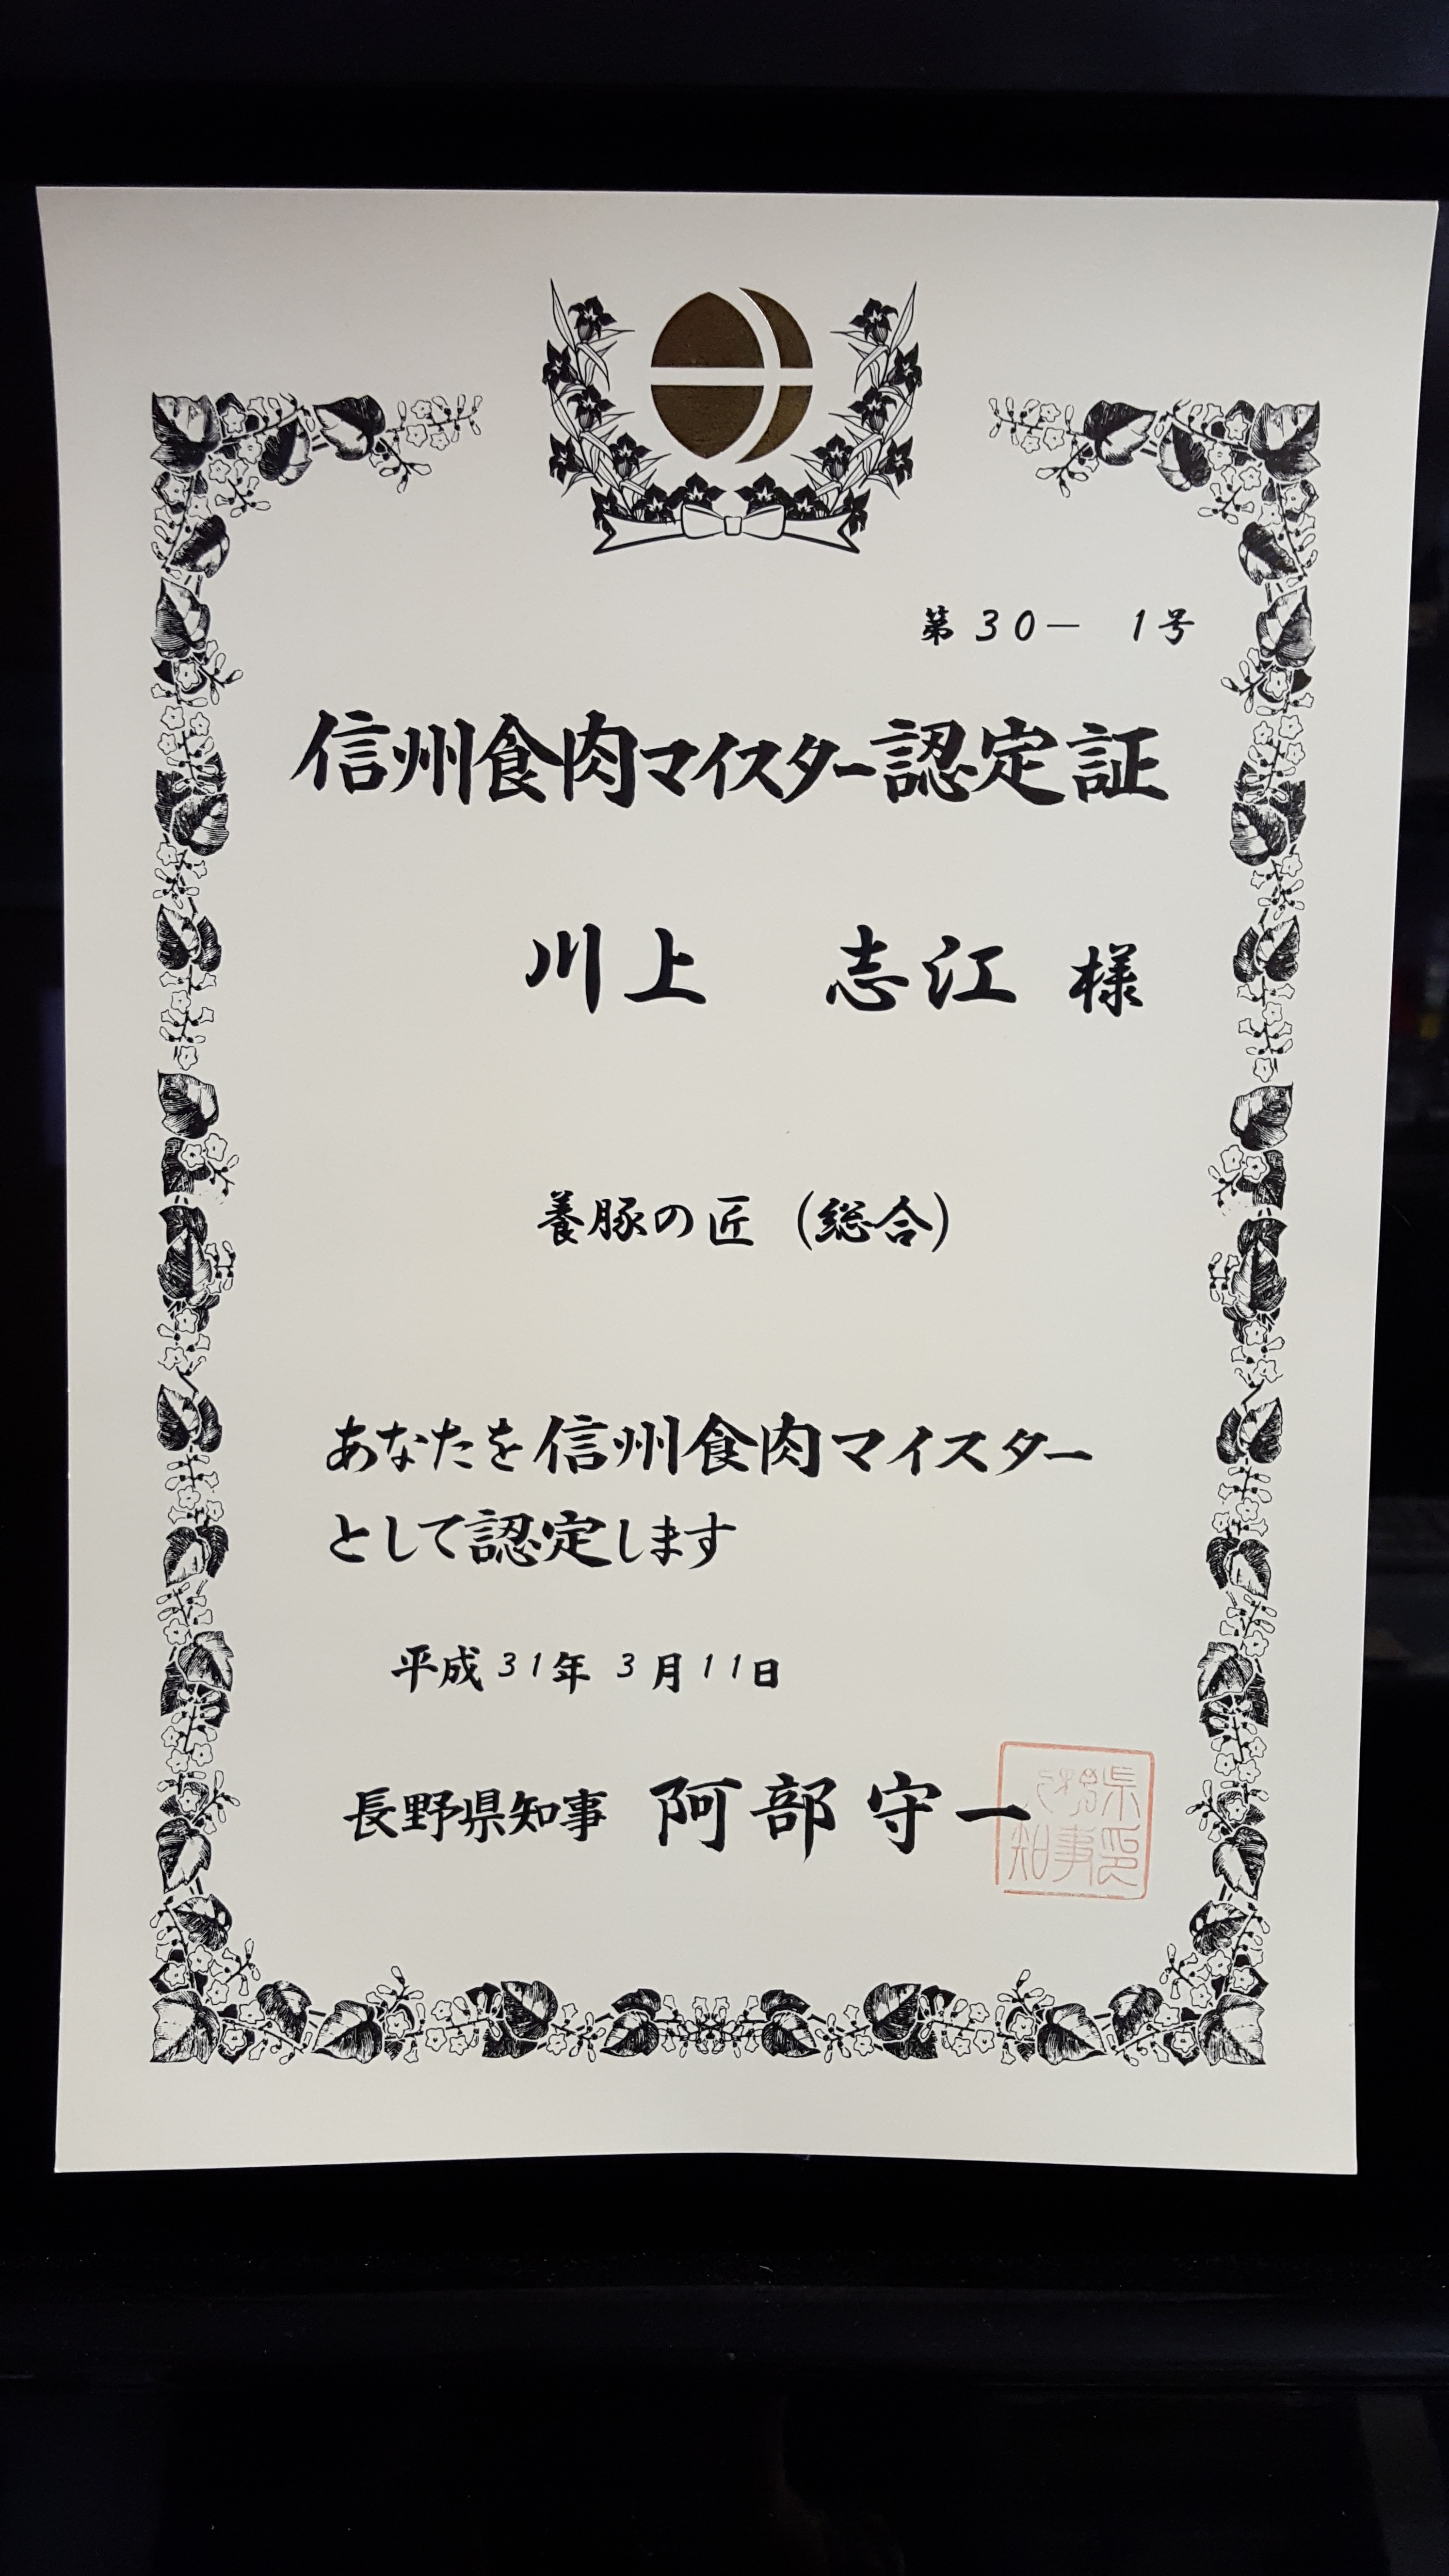 第30― 1号
信州食肉マイスター認定証
川上 志江 様
養豚の匠(総合)
あなたを信州食肉マイスター
として認定します
平成31年3月11日
長野県知事 阿部守一